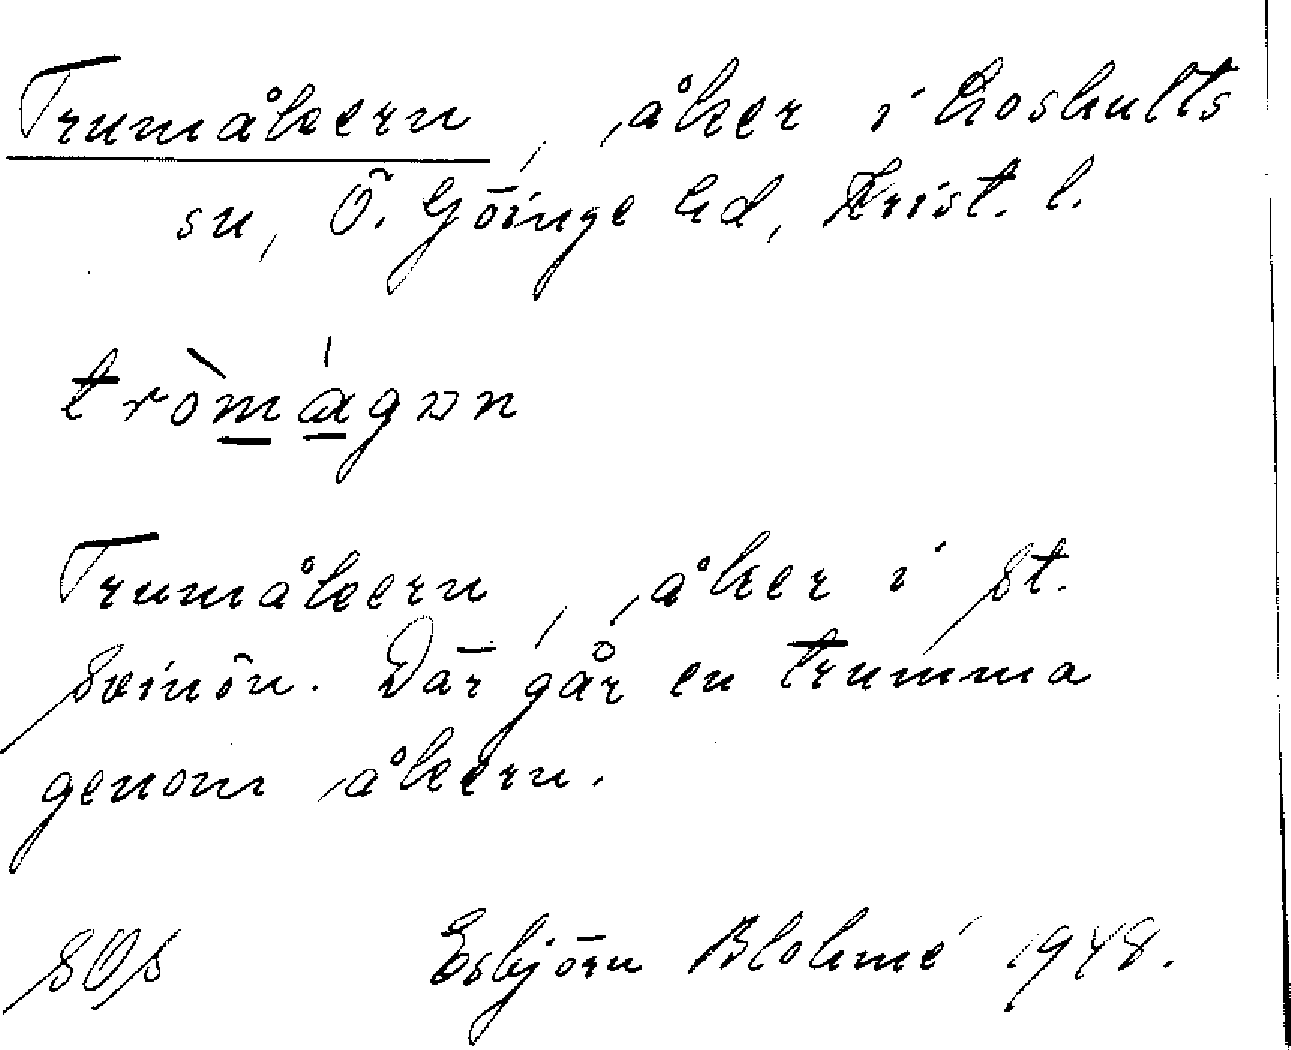 Trumåkern, åker i Loshults
sn, Ö. Göinge hd, Krist. l.
tròmágɒn
Trumåkern, åker i St.
Svinön. Där går en trumma
genom åkern.
SOS Esbjörn Blohmé 1948.